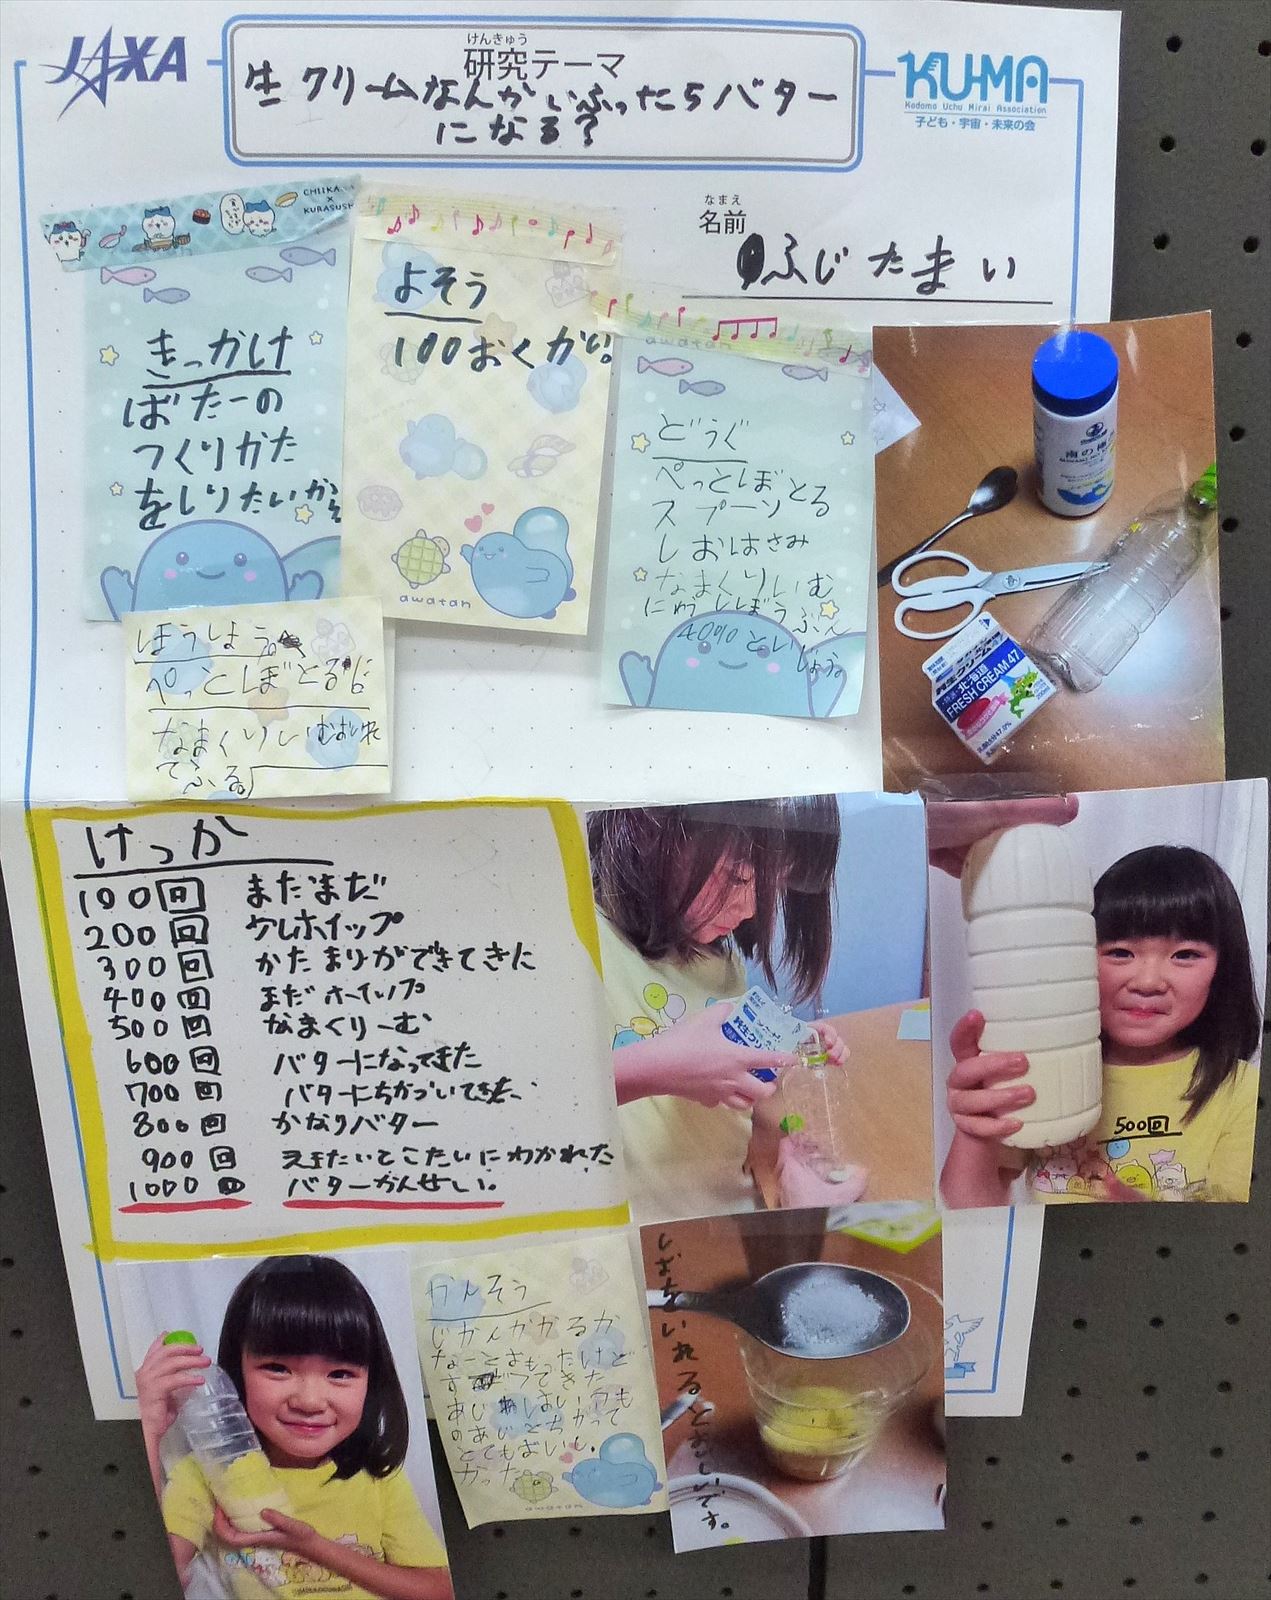 JAXA
けんきゅう
研究テーマ
生クリームなんかいふったらバター
になる？
KU-MA
Kodomo Uchu Mirai Association
子ども・宇宙・未来の会
なまえ
名前
ふじたまい
CHIIKA
×
KURASUSHI
きっかけ
ばたーの
つくりかた
をしりたいから
よそう
100おくかい。
awatan
awatan
どうぐ
ぺっとぼとる
スプーン
しおはさみ
なまくりいむ
にゅうしぼうぶん
40%といじょう
北海道
FRESH CREAM 47
ほうほう
ぺっとぼとるに
なまくりいむおいれ
てふる。
けっか
100回 まだまだ
200回
300回 かたまりができてきた
400回 まだホイップ
500回 なまくりーむ
600回 バターになってきた
700回 バターにちかづいてきた
800回 かなりバター
900回 えきたいとこたいにわかれた
1000回 バターかんせい。
500回
かんそう
じかんかかるか
なーとおもったけど
すぐできた
のあじとちがって
とてもおいし
かった。
awatan
しおをいれるとおいしいです。